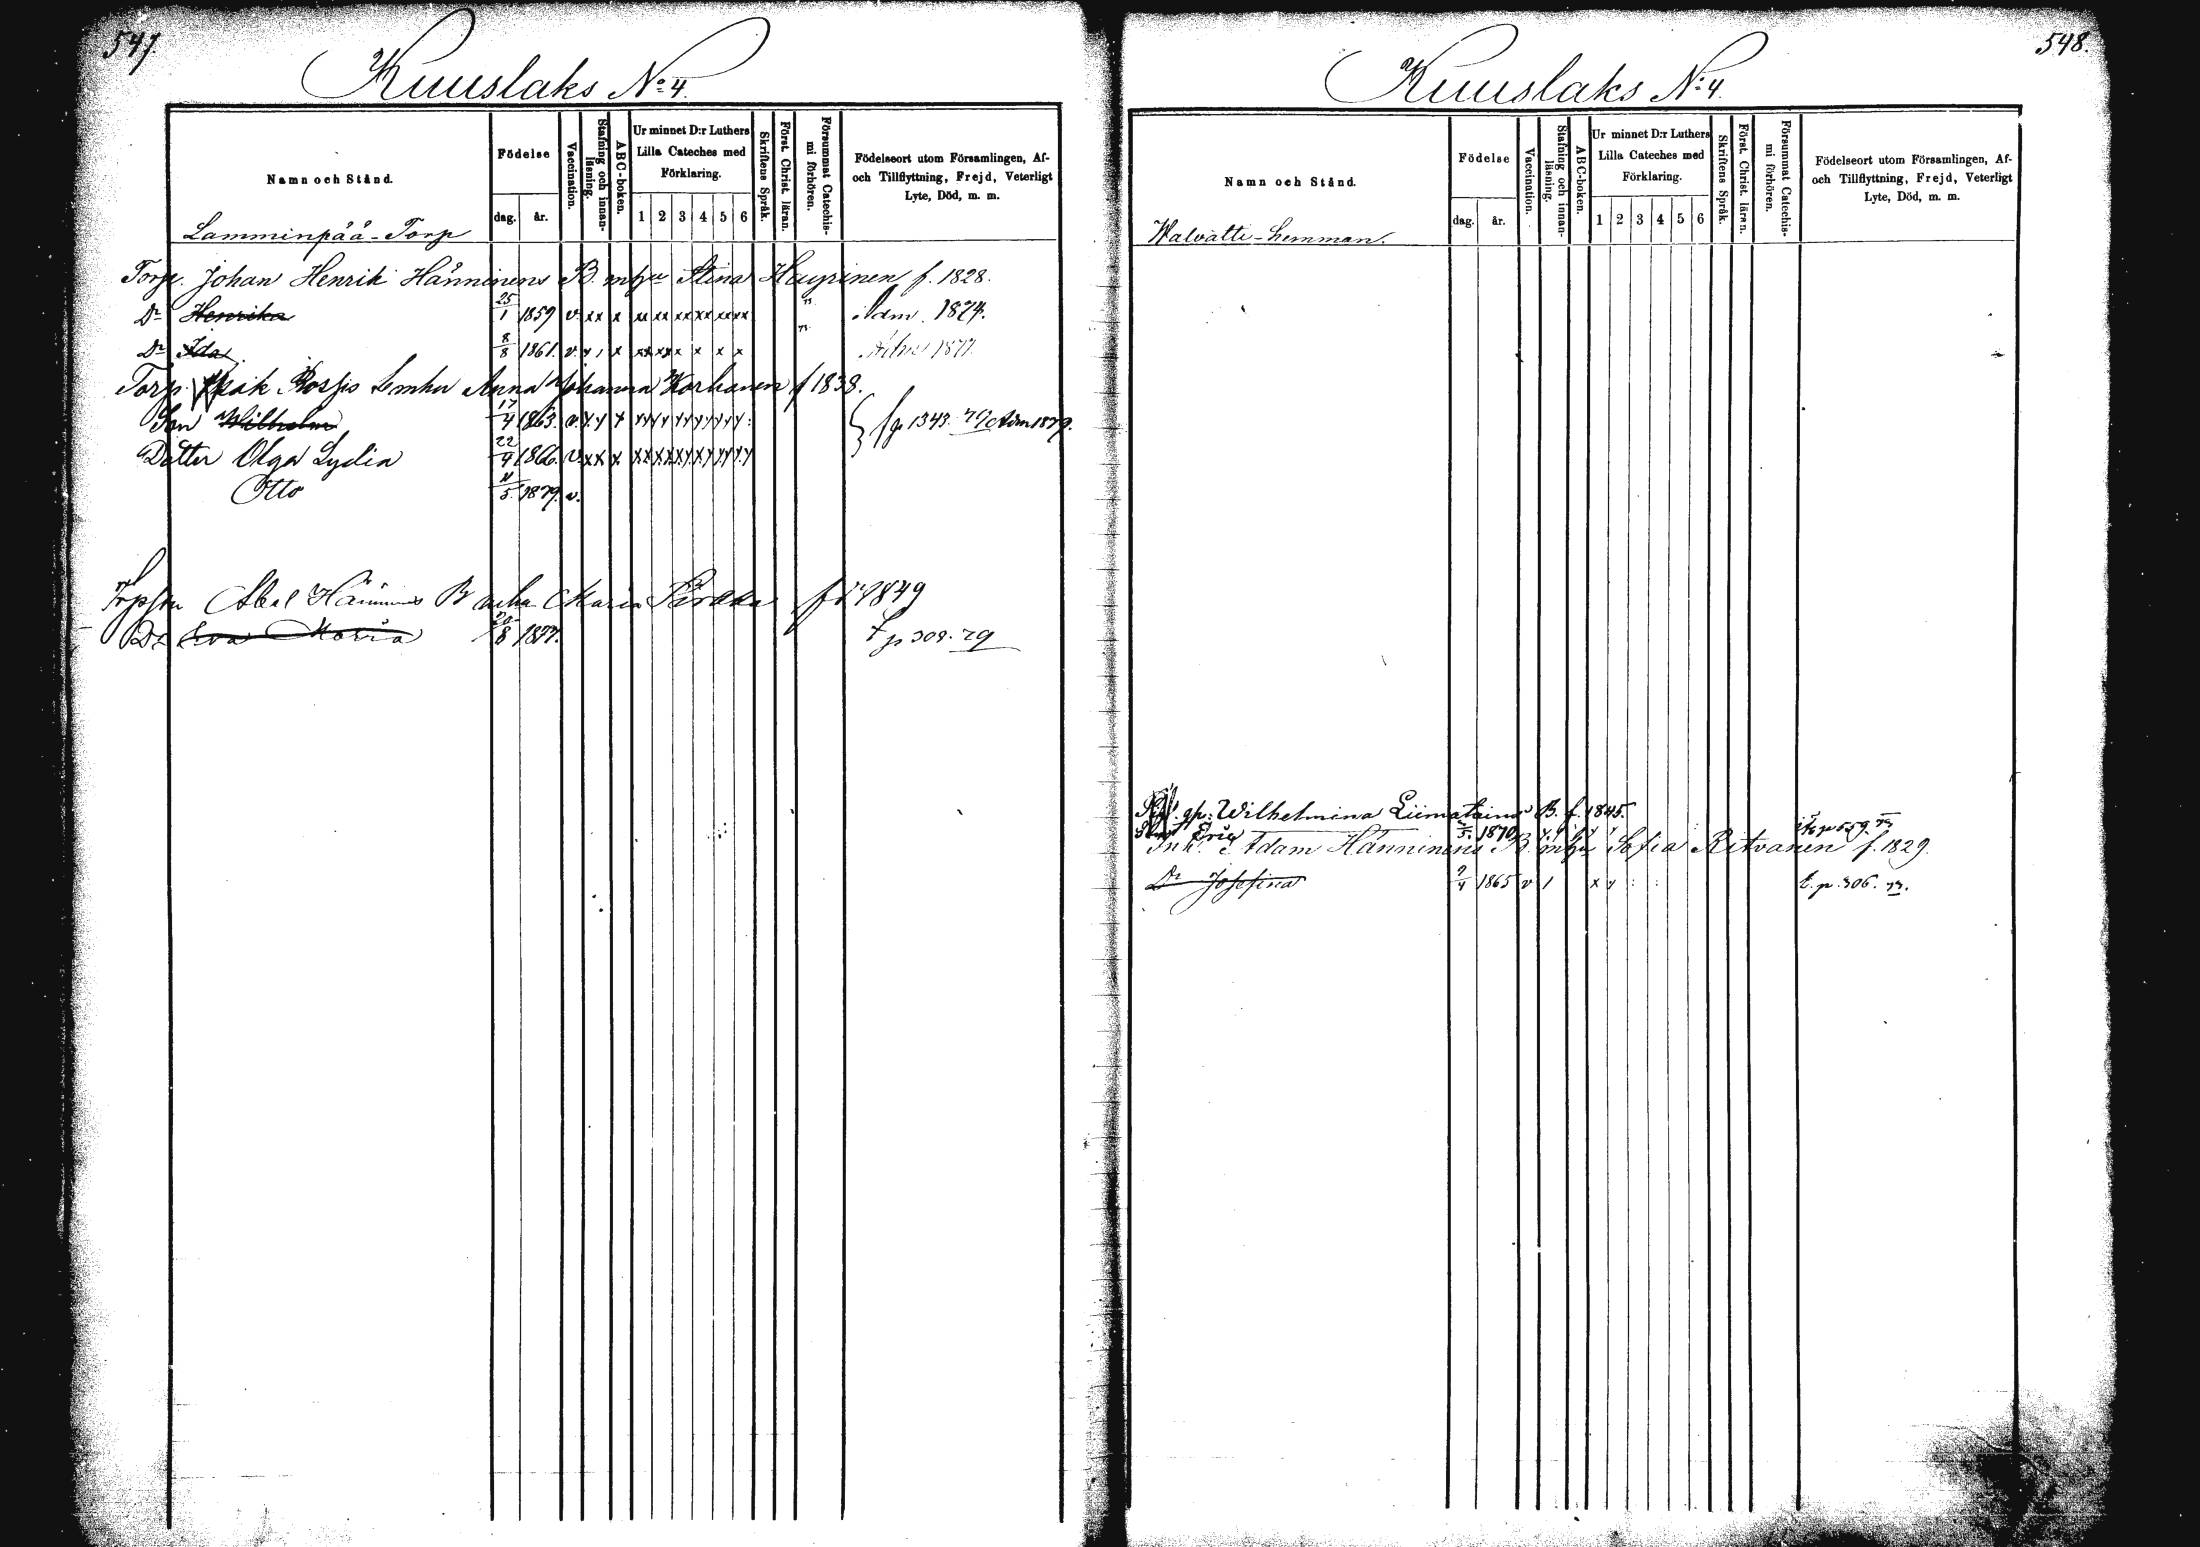 547.
Kuuslaks No 4.
Namn och Stånd.
Födelse
dag.
år.
Vaccination.
Stafning och innan-
läsning.
ABC-boken.
Ur minnet D:r Luthers
Lilla Cateches med
Förklaring.
1 2 3 4 5 6
Skriftens Språk.
Först. Christ. läran.
Försummat Catechis-
mi förhören.
Födelseort utom Församlingen, Af-
och Tillflyttning, Frejd, Veterligt
Lyte, Död, m. m.
Lamminpää-Torp
Torp. Johan Henrik Hänninens B. m hu Stina f. 1828.
Dr Henrika 25/1 1859 v. xx x xx xx xx xx xx xx Adm. 1874.
Dr Ida 8/8 1861. v. x x x x x x 1877.
Torp. Rossis Anna Johanna Korhonen f 1838.
Son Wilhelm 17/4 1863. v. 1343. 79 Adm 1879.
Dotter Olga Lydia 22/4 1866. v. xx x
Otto 11/5 1879. v.
Abel Hänninens B Maria f. 1849
Dr Eva Maria 20/8 1877. p 308. 79
548.
Kuuslaks N:4.
Namn och Stånd.
Födelse
dag.
år.
Vaccination.
Stafning och innan-
läsning.
ABC-boken.
Ur minnet D:r Luthers
Lilla Cateches med
Förklaring.
1 2 3 4 5 6
Skriftens Språk.
Först. Christ. läran.
Försummat Catechis-
mi förhören.
Födelseort utom Församlingen, Af-
och Tillflyttning, Frejd, Veterligt
Lyte, Död, m. m.
Walvatti-hemman.
Wilhelmina Liimatainens B. f. 1845.
1870 p 559. 73
Inh. Adam Hänninens B. m hu Sofia Ritvanen f. 1829.
Dr Josefina 9/4 1865 v 1 x y : : t. p. 306. 73.